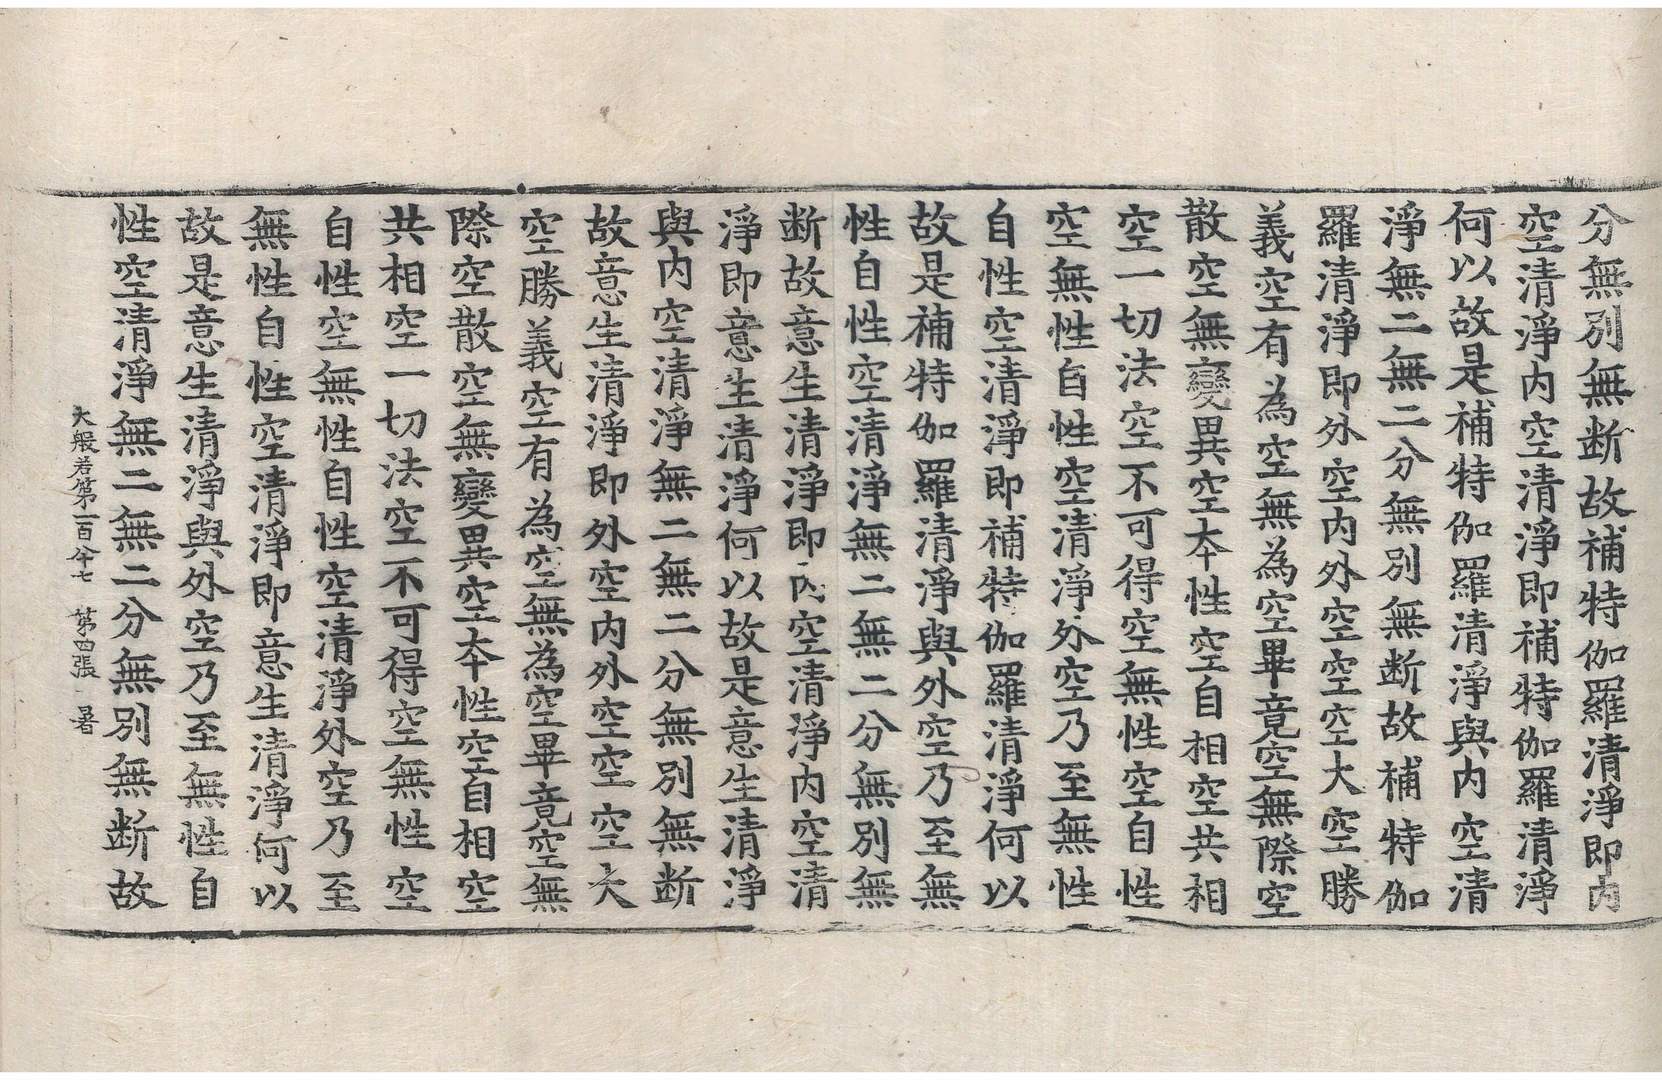 分無別無断故補特伽羅清淨即内
空清淨内空清淨即補特伽羅清淨
何以故是補特伽羅清淨與内空清
淨無二無二分無別無断故補特伽
羅清淨即外空内外空空空大空勝
義空有為空無為空畢竟空無際空
散空無變異空夲性空自相空共相
空一切法空不可得空無性空自性
空無性自性空清淨外空乃至無性
自性空清淨即補特伽羅清淨何以
故是補特伽羅清淨與外空乃至無
性自性空清淨無二無二分無別無
断故意生清淨即内空清淨内空清
淨即意生清淨何以故是意生清淨
與内空清淨無二無二分無別無断
故意生清淨即外空内外空空空大
空勝義空有為空無為空畢竟空無
際空散空無變異空夲性空自相空
共相空一切法空不可得空無性空
自性空無性自性空清淨外空乃至
無性自性空清淨即意生清淨何以
故是意生清淨與外空乃至無性自
性空清淨無二無二分無別無断故
大般若第一百八十七 第四張 暑